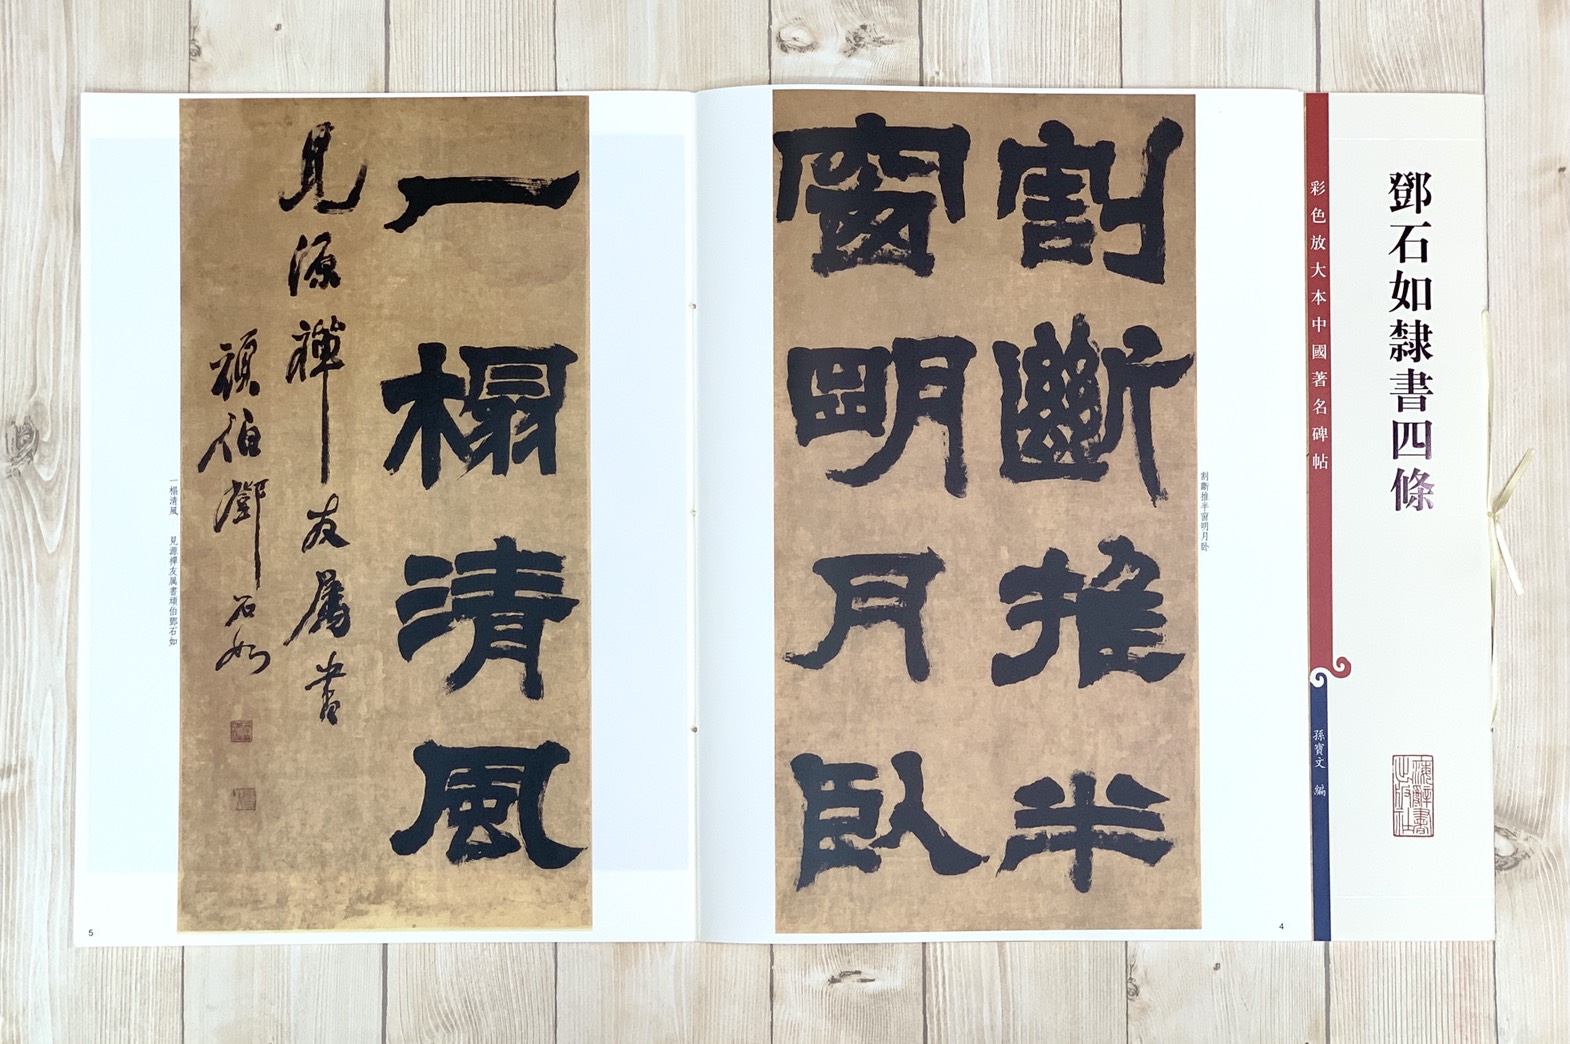 鄧石如隸書四條
彩色放大本中國著名碑帖
孫寶文 編
上海辭書出版社
割斷推半
窗明月臥
割斷推半窗明月卧
4
一榻清風
見源禪友屬書
頑伯鄧石如
一榻清風 見源禪友属書頑伯鄧石如
5